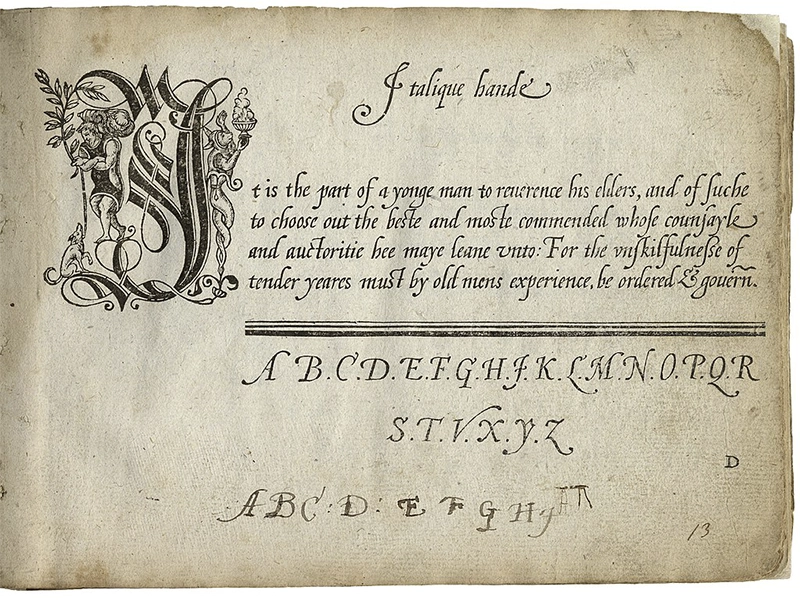 Italique hande
It is the part of a yonge man to reuerence his elders, and of suche
to choose out the beste and moste commended whose counsayle
and auctoritie hee maye leane vnto: For the vnskilfulnesse of
tender yeares must by old mens experience, be ordered & gouern̄.
A B.C.D.E.F.G.H.I.K.L.M.N.O.P.Q.R
S.T.V.X.Y.Z
D
A B C : D : E F G H I
13